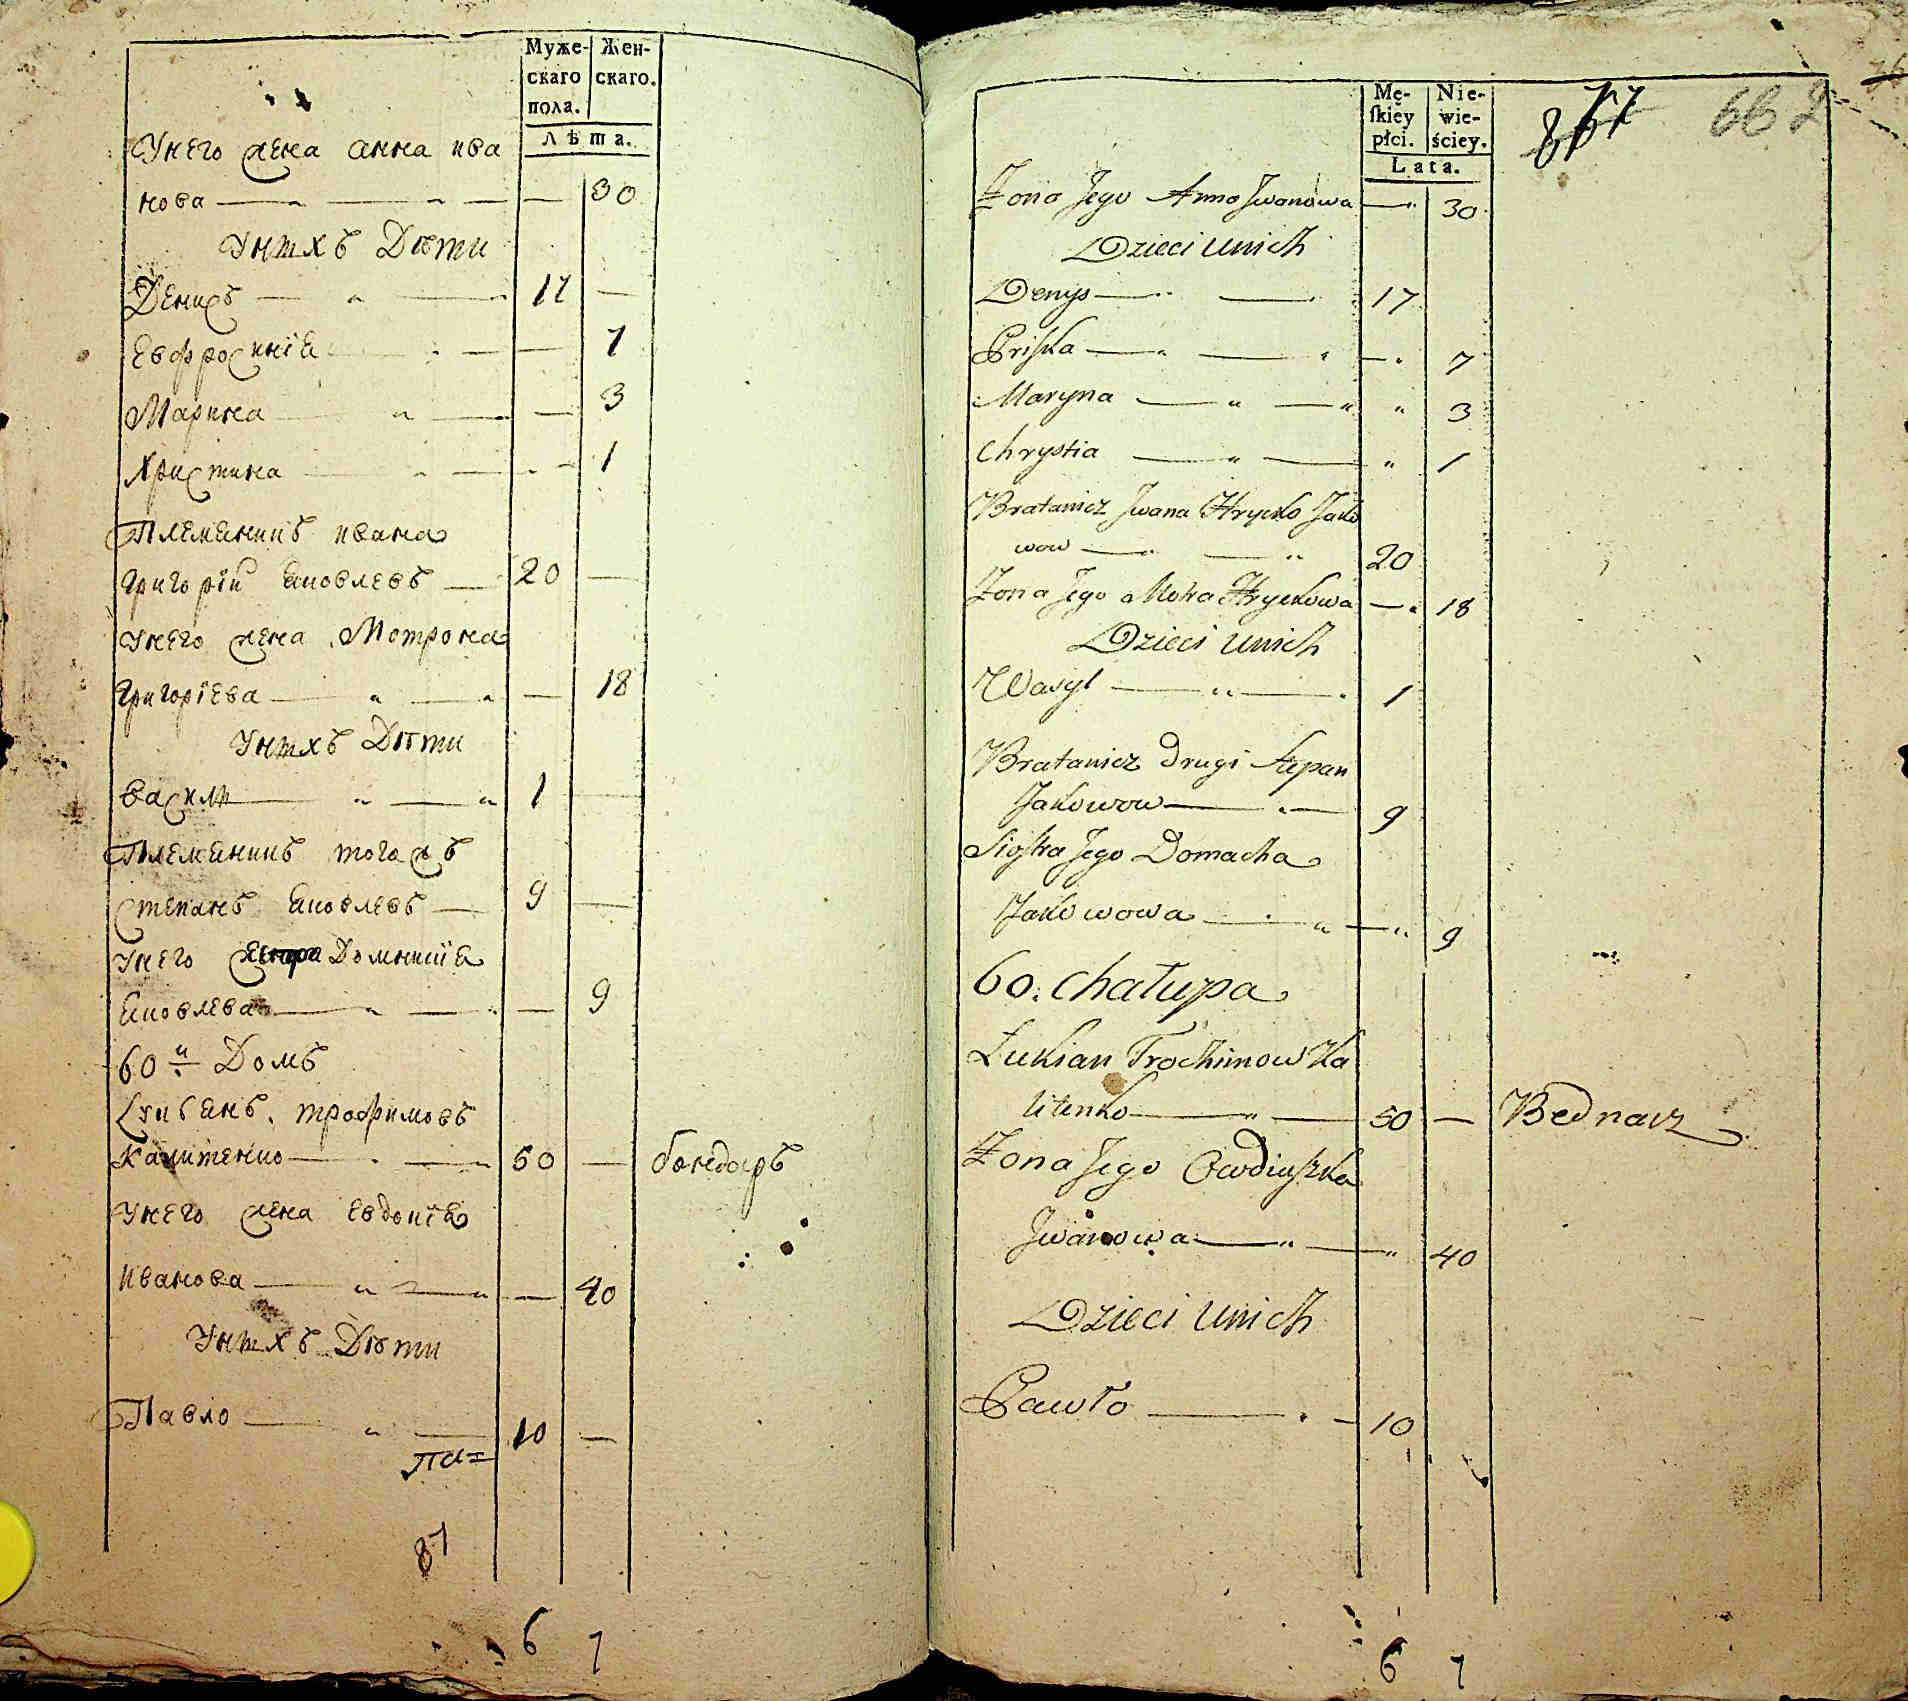 Муже-
скаго
пола.
Жен-
скаго.
Лѣта.
Унего жена анна ива
нова — — — 30
Унихъ Дѣти
Денисъ — — 17 —
Евфросиніа — — — 7
Марина — — — 3
Христина — — — 1
Племеникъ ивана
Григорій Яковлевъ — 20 —
Унего жена Мотрона
Григоріева — — — 18
Унихъ Дѣти
Васили — — 1 —
Племеникъ тогожъ
Степанъ Яковлевъ — 9 —
Унего сестра Домникіа
Яковлева — — — 9
60й Домъ
Лукіанъ трофимовъ
Калитенко — — 50 — бондарь
Унего жена евдокіа
Иванова — — — 40
Унихъ Дѣти
Павло — — 10 —
87
6 7
Mę-
skiey
płci.
Nie-
wie-
ściey.
Lata.
77
662
Żona Jego Anna Jwanowa — 30
Dzieci unich
Denys — — 17
Priska — — — 7
Maryna — — 3
Chrystia — — 1
Bratanicz Jwana Hrycko Jako
wow — — 20
Żona Jego Motra Hryckowa — 18
Dzieci unich
Wasyl — — 1
Bratanicz drugi Stepan
Jakowow — — 9
Siostra Jego Domacha
Jakowowa — — — 9
60. Chałupa
Łukian Trochimow Ka
litenko — — 50 — Bednarz
Żona Jego Owdiuszka
Jwanowa — — 40
Dzieci unich
Pawło — — 10
6 7